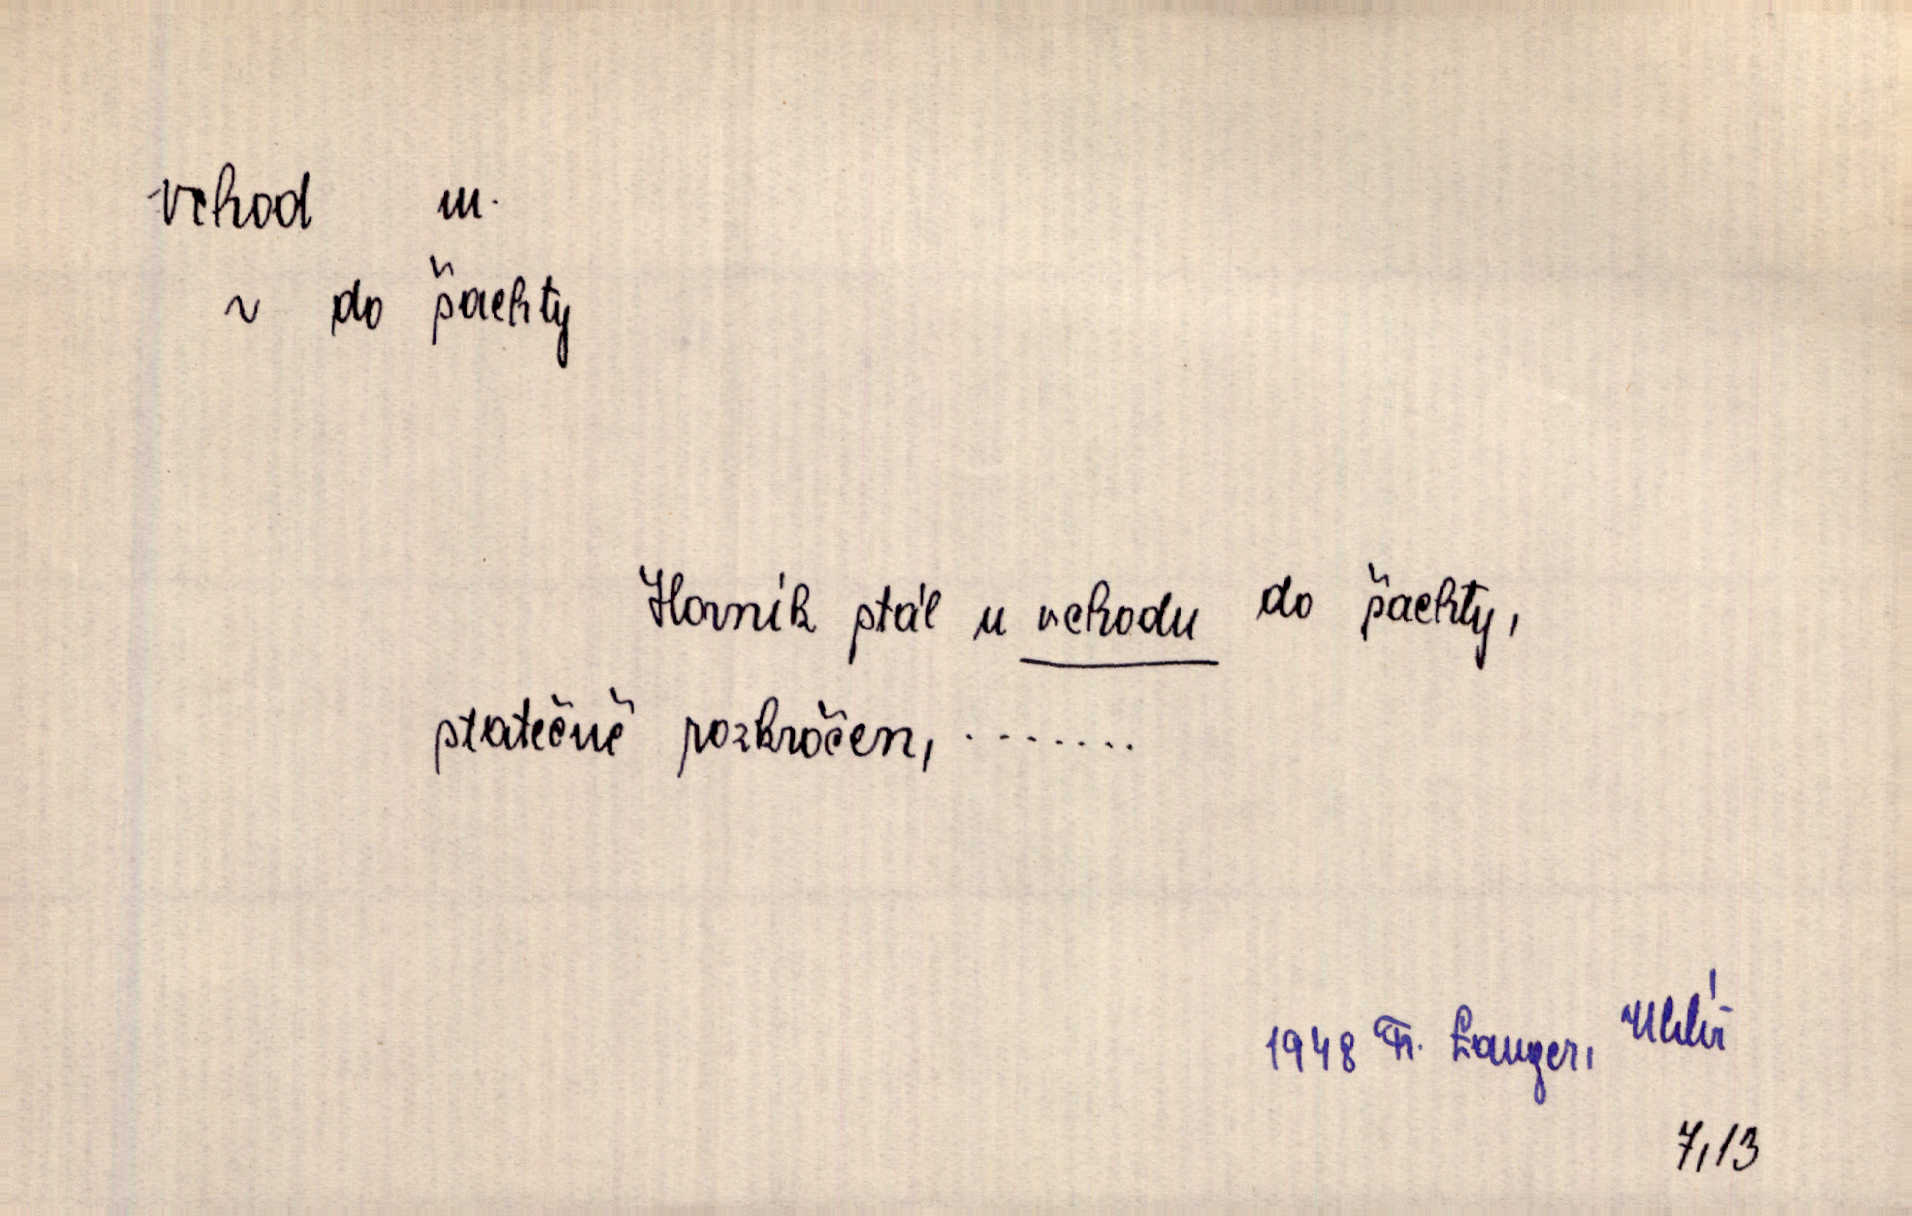 vchod m.
~ do šachty
Horník stál u vchodu do šachty,
statečně rozkročen, .......
1948 Fr. Langer, Uhlíř
7,13